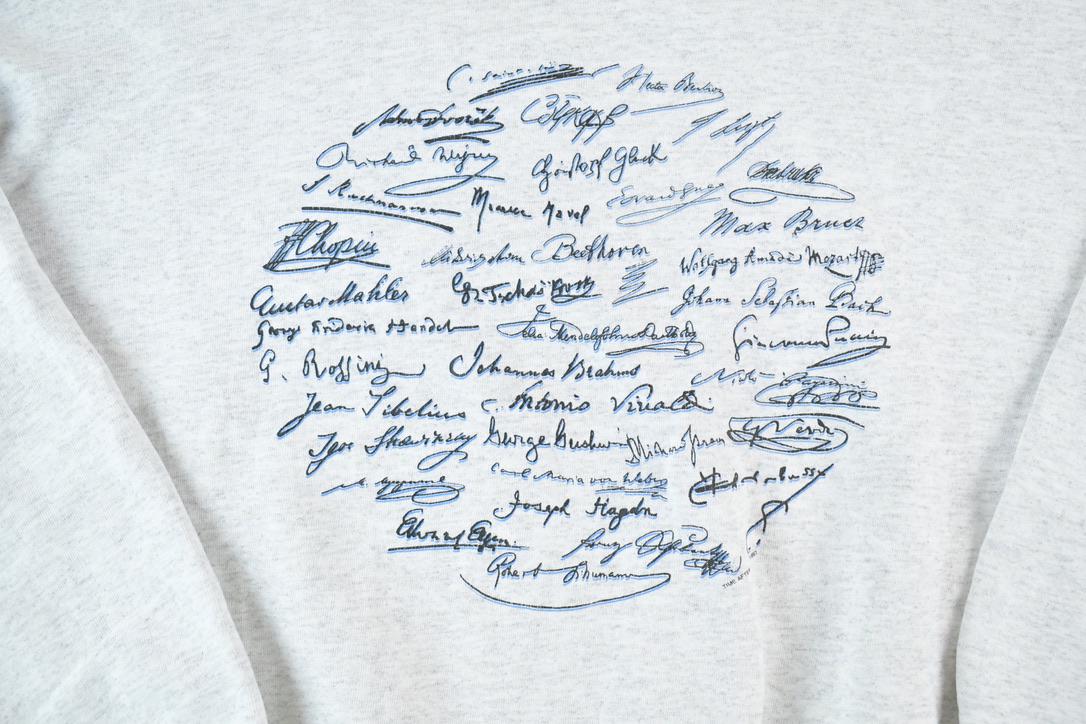 C. Saint-Saëns Hector Berlioz
Antonín Dvořák F Liszt
Richard Wagner Christoph Gluck
S Rachmaninow Maurice Ravel Edvard Grieg
Max Bruch
FChopin Beethoven Wolfgang Amadè Mozart
Gustav Mahler Johann Sebastian Bach
George Frideric Handel Felix Mendelssohn Bartholdy Giacomo Puccini
G. Rossini Johannes Brahms
Jean Sibelius Antonio Vivaldi
Igor Strawinsky George Gershwin GVerdi
Carl Maria von Weber
Joseph Haydn
Edward Elgar
Robert Schumann